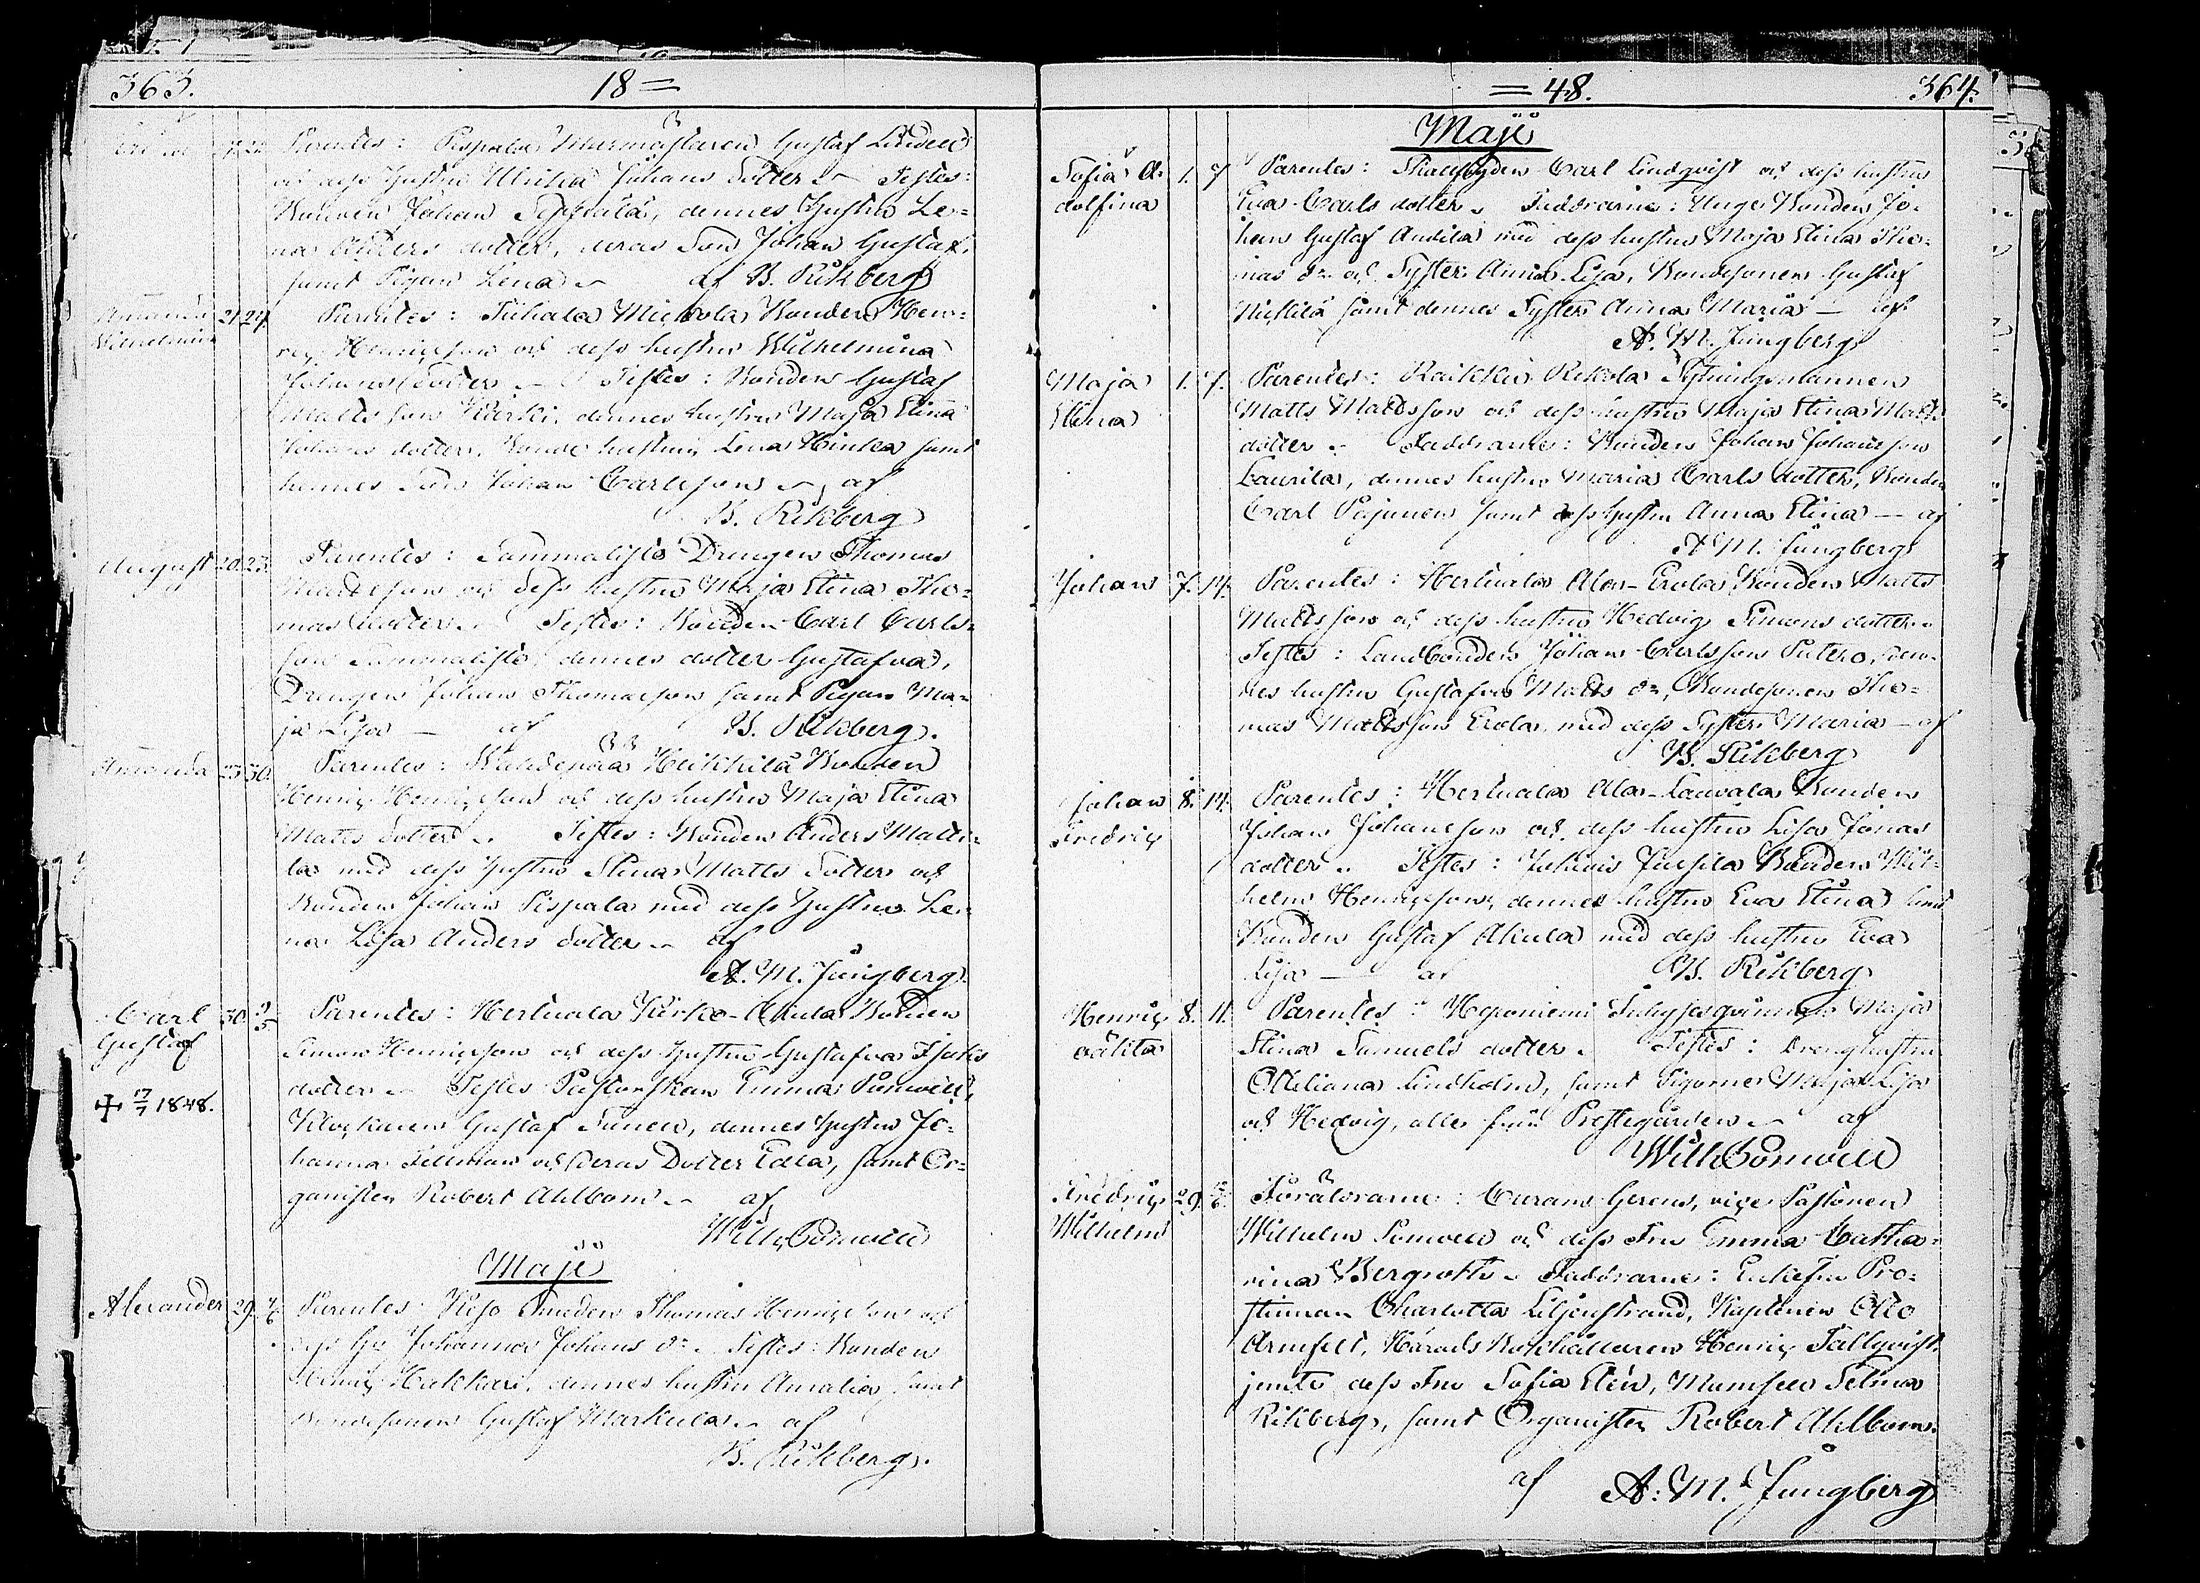 363. 18=
Parentes: Pispala Murmästaren Gustaf Lindell
och dess hustru Ulrika Johans dotter. Testes:
Bonden Johan Seppälä, dennes hustru Le=
na Anders dotter, deras Son Johan Gustaf,
samt Pigan Lena af B. Rikberg
Amanda Wilhelmina 21. 24. Parentes: Bonden Hen=
ric Henricsson och dess hustru Wilhelmina
Johans dotter. Testes: Bonden Gustaf
Matts son Kärki, dennes hustru Maja Stina
Johans dotter, Bonde hustrun Lena samt
hennes Son Johan Carlsson af
B. Rikberg
August 20. 23. Parentes: Sammalisto Drengen Thomas
och dess hustru Maja Stina Tho=
mas dotter. Testes: Bonden Carl Carls=
son Sammalisto, dennes dotter Gustafva,
Drengen Johan Thomasson samt Pigan Ma=
ja Lisa — af B. Rikberg.
Amanda 25 30. Parentes: Heikkilä Bonden
Henric Henricsson och dess hustru Maja Stina
Matts dotter. Testes: Bonden Anders Matti=
la med dess hustru Stina Matts dotter och
Bonden Johan Pispala med dess hustru Le=
na Lisa Anders dotter af
A. M. Jungberg.
Carl 30 3/5 Parentes: Hertuala Akula Bonden
Gustaf Simon Henricsson och dess hustru Gustafva Isaks
dotter. Testes Pastorskan Emma Ponvell,
✝ 17/7 1848. Klockaren Gustaf Tunell, dennes hustru Jo=
hanna Tellman och deras Dotter Edla, samt Or=
ganisten Robert Ahlbom af
Wilh Ponvell
Maji
Alexander 29. Parentes: Smeden Thomas Henricsson och
dess h:u Johanna Johans dr. Testes: Bonden
Henric Hakkari, dennes hustru Amalia samt
Bondesonen Gustaf Markula af
B. Rikberg.
=48. 364.
Maji
Sofia A= 1. 7 Parentes: Carl Lindqvist och dess hustru
dolfina Eva Carls dotter. Faddrarne: Unge Bonden Jo=
han Gustaf Anttila med dess hustru Maja Stina Tho=
mas dr och Syster Anna Lisa, Bondesonen Gustaf
samt dennes Syster Anna Maria — af
A. M. Jungberg
Maja 1. 7. Parentes: Raikku Rekola Sytningsmannen
Stina Matts Mattsson och dess hustru Maja Stina Matts
dotter. Faddrarne: Bonden Johan Johansson
Laurila, dennes hustru Maria Carls dotter, Bonden
Carl Pajunen samt dess hustru Anna Stina — af
A. M. Jungberg
Johan 7. 14. Parentes: Hertuala Ala-Erola Bonden Matts
Mattsson och dess hustru Hedvig Simons dotter.
Testes: Landbonden Johan Carlsson Putero, den=
nes hustru Gustafva Matts dr, Bondesonen Tho=
mas Mattsson Erola, med dess Syster Maria — af
B. Rikberg
Johan 8. 14. Parentes: Hertuala Ala-Laurala Bonden
Fredric Johan Johansson och dess hustru Lisa Jonas
dotter. Testes: Bonden Wil=
helm Henricsson, dennes hustru Eva Stina samt
Bonden Gustaf Akula med dess hustru Eva
Lisa — af B. Rikberg
Henric 8. 11. Parentes: Heponiemi Inhysesqvinnan Maja
oäkta Stina Samuels dotter. Testes: Dreng hustru
Ottiliana Lindholm, samt Pigorne Maja Lisa
och Hedvig, alla från Prestegården af
Wilh Ponvell
Fredric 29. Föräldrarne: Curam Gerens, vice Pastoren
Wilhelm Wilhelm Ponvell och dess Fru Emma Catha=
rina Bergroth. Faddrarne: Enkefru Pro=
stinnan Charlotta Liljenstrand, Kaptenen Otto
Armfelt, Härads Bokhållaren Henric Tallqvist
jemte dess Fru Sofia Elén, Mamsell Selma
Rikberg, samt Organisten Robert Ahlbom.
af A: M. Jungberg